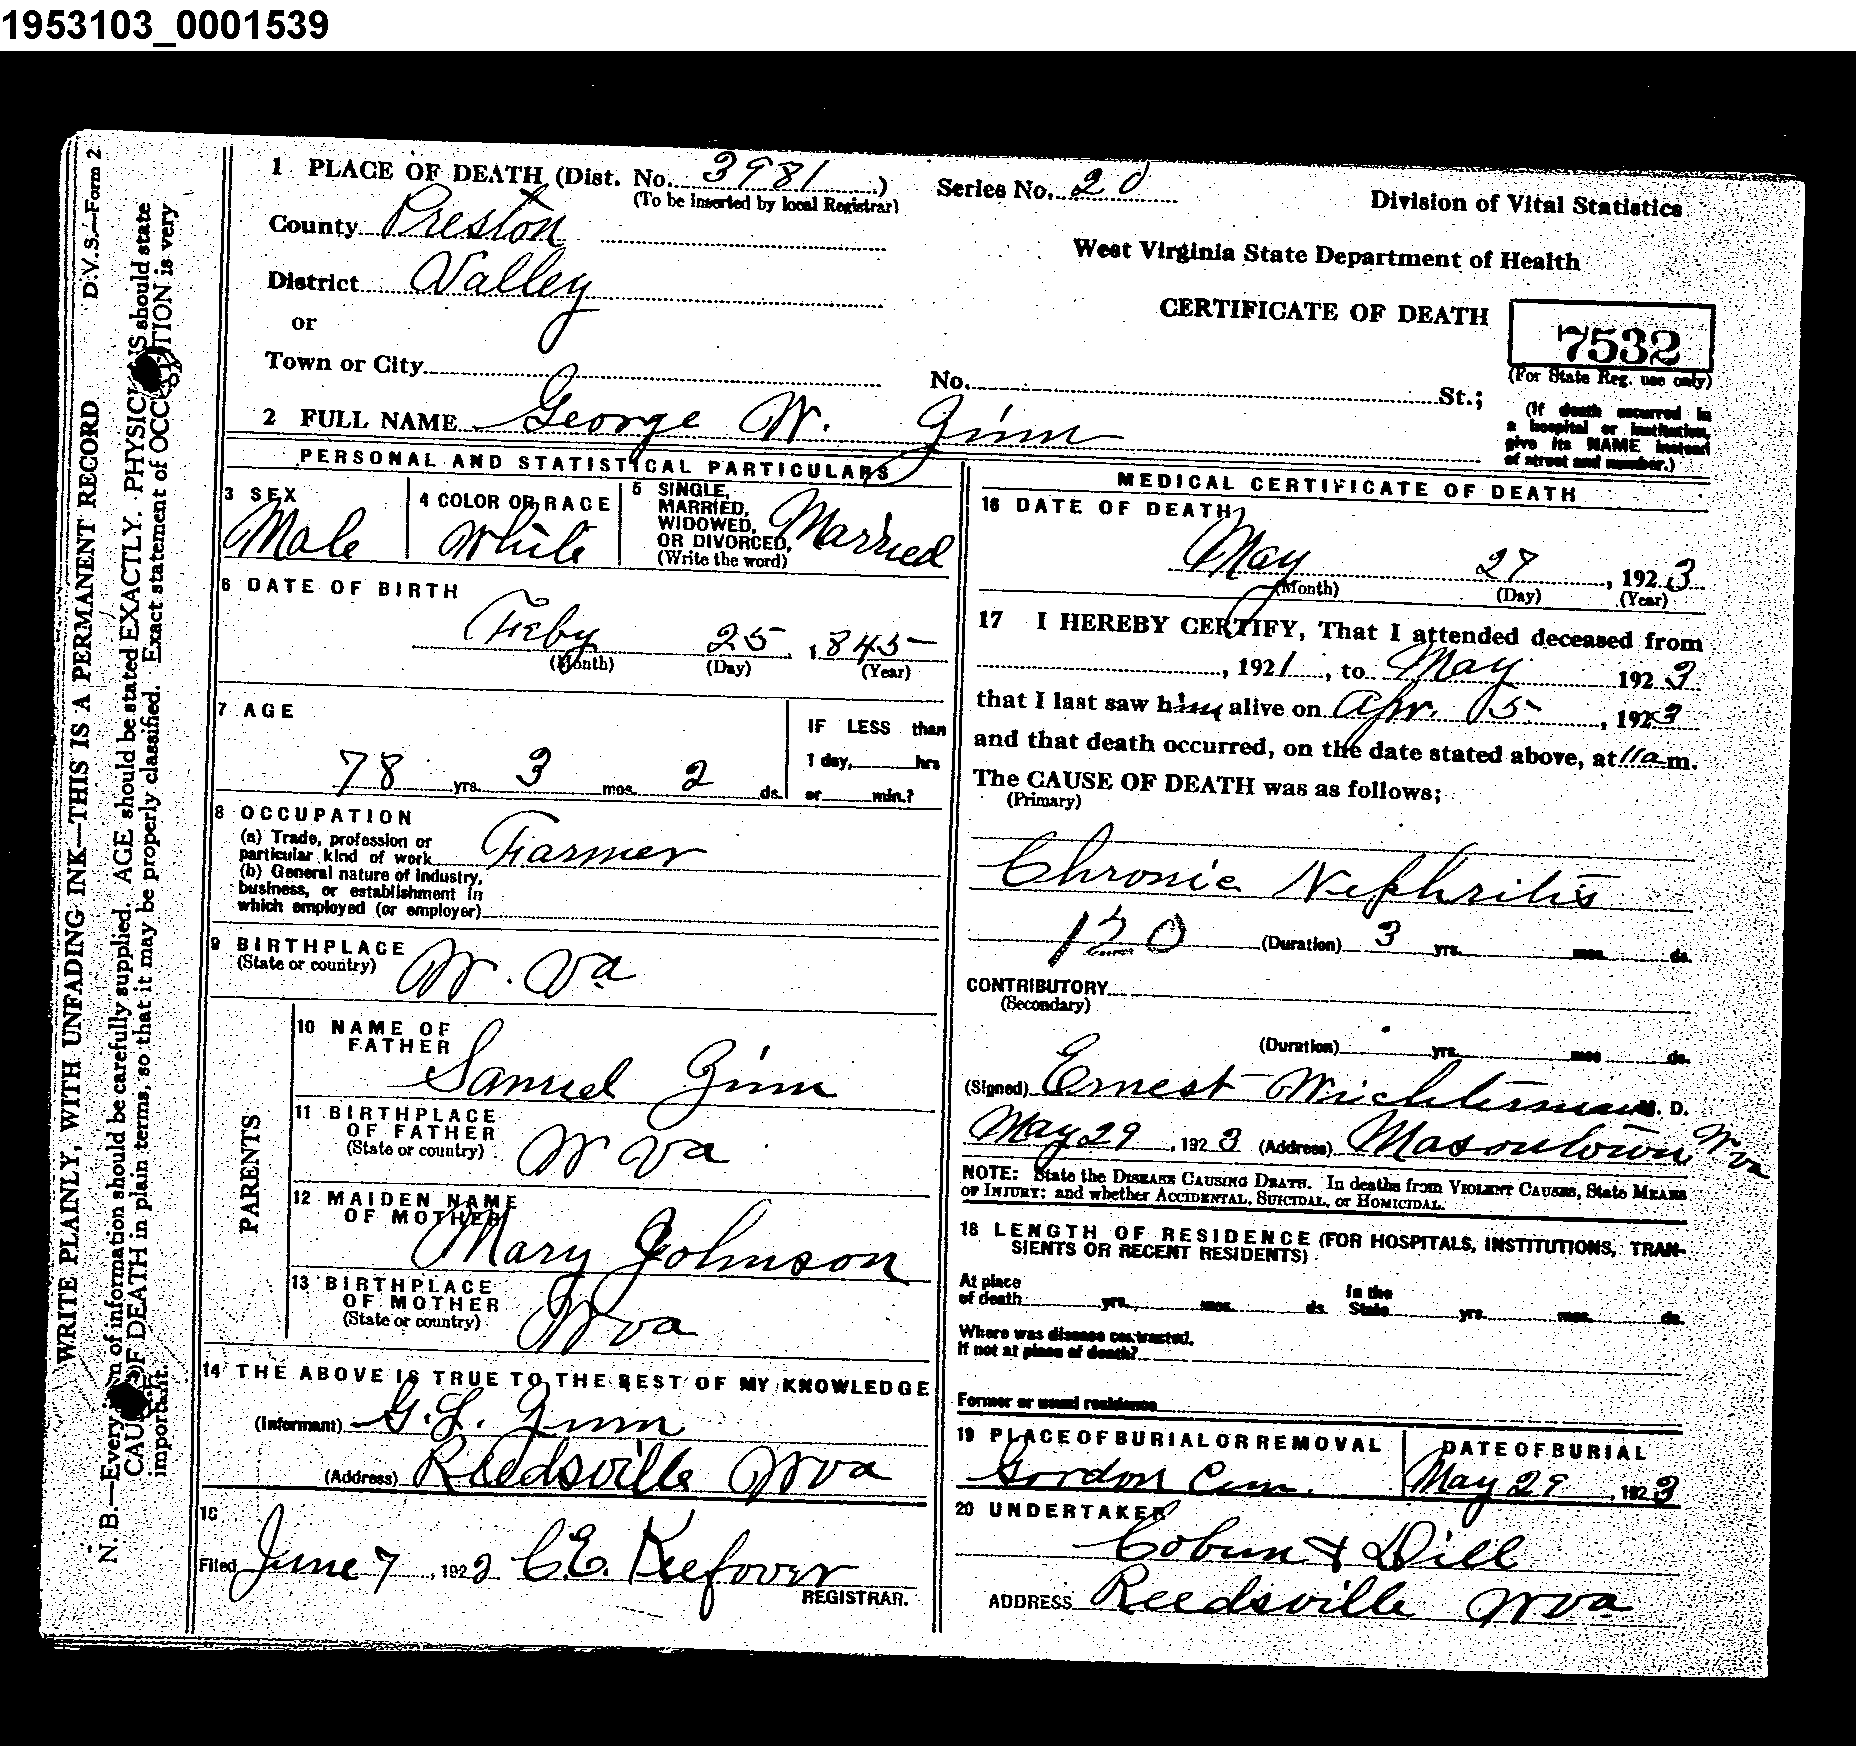 1953103_0001539
D.V.S.—Form 2
WRITE PLAINLY, WITH UNFADING INK—THIS IS A PERMANENT RECORD
N. B.—Every item of information should be carefully supplied. AGE should be stated EXACTLY. PHYSICIANS should state
CAUSE OF DEATH in plain terms, so that it may be properly classified. Exact statement of OCCUPATION is very
important.
1 PLACE OF DEATH (Dist. No. 3981)
(To be inserted by local Registrar)
Series No. 20
Division of Vital Statistics
County Preston
West Virginia State Department of Health
District Valley
CERTIFICATE OF DEATH
7532
(For State Reg. use only)
or
Town or City
No. St.;
(If death occurred in
a hospital or institution,
give its NAME instead
of street and number.)
2 FULL NAME George W. Zinn
PERSONAL AND STATISTICAL PARTICULARS
3 SEX
Male
4 COLOR OR RACE
White
5 SINGLE,
MARRIED,
WIDOWED,
OR DIVORCED,
(Write the word)
Married
6 DATE OF BIRTH
Feby 25, 1845
(Month) (Day) (Year)
7 AGE
78 yrs. 3 mos. 2 ds.
IF LESS than
1 day, hrs
or min.?
8 OCCUPATION
(a) Trade, profession or
particular kind of work Farmer
(b) General nature of industry,
business, or establishment in
which employed (or employer)
9 BIRTHPLACE
(State or country) W. Va
PARENTS
10 NAME OF
FATHER
Samuel Zinn
11 BIRTHPLACE
OF FATHER
(State or country) W Va
12 MAIDEN NAME
OF MOTHER
Mary Johnson
13 BIRTHPLACE
OF MOTHER
(State or country) W va
14 THE ABOVE IS TRUE TO THE BEST OF MY KNOWLEDGE
(Informant) G. L. Zinn
(Address) Reedsville W va
15
Filed June 7, 1923 C.E. Keefover
REGISTRAR.
MEDICAL CERTIFICATE OF DEATH
16 DATE OF DEATH
May 27, 1923
(Month) (Day) (Year)
17 I HEREBY CERTIFY, That I attended deceased from
, 1921, to May 1923
that I last saw him alive on Apr. 15, 1923
and that death occurred, on the date stated above, at 11a m.
The CAUSE OF DEATH was as follows;
(Primary)
Chronic Nephritis
(Duration) 3 yrs. mos. ds.
CONTRIBUTORY
(Secondary)
(Duration) yrs. mos. ds.
(Signed) Ernest Wichterman M. D.
May 29, 1923 (Address) Masontown W va
NOTE: State the DISEASE CAUSING DEATH. In deaths from VIOLENT CAUSES, State MEANS
OF INJURY; and whether ACCIDENTAL, SUICIDAL, or HOMICIDAL.
18 LENGTH OF RESIDENCE (FOR HOSPITALS, INSTITUTIONS, TRAN-
SIENTS OR RECENT RESIDENTS)
At place
of death yrs. mos. ds.
In the
State yrs. mos. ds.
Where was disease contracted,
if not at place of death?
Former or usual residence
19 PLACE OF BURIAL OR REMOVAL
Gordon Cem.
DATE OF BURIAL
May 29, 1923
20 UNDERTAKER
Cobun & Dill
ADDRESS Reedsville W va